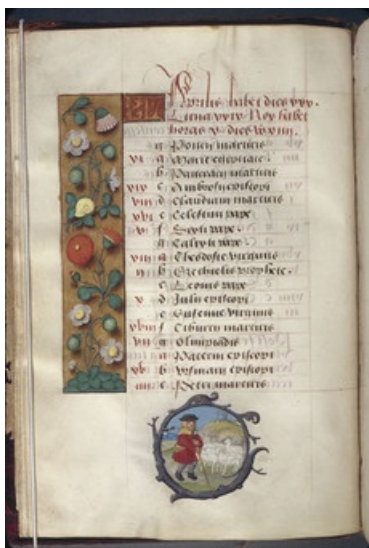 KL Aprilis habet dies xxx.
Luna xxix Nox habet
horas x dies xiiii.
g martiris
xi a Marie egiptiace
b Pancracii martiris
xix c Ambrosii episcopi
viii d Claudiani martiris
xvi e Celestini pape
v f Sixti pape
g Calixti pape
a Theodosie virginis
ii b Ezechielis prophete
c Leonis pape
x d Julii episcopi
e Eufemie virginis
xviii f Tiburcii martiris
vii g Olimpiadis
a episcopi
xv b episcopi
iiii c Petri martiris